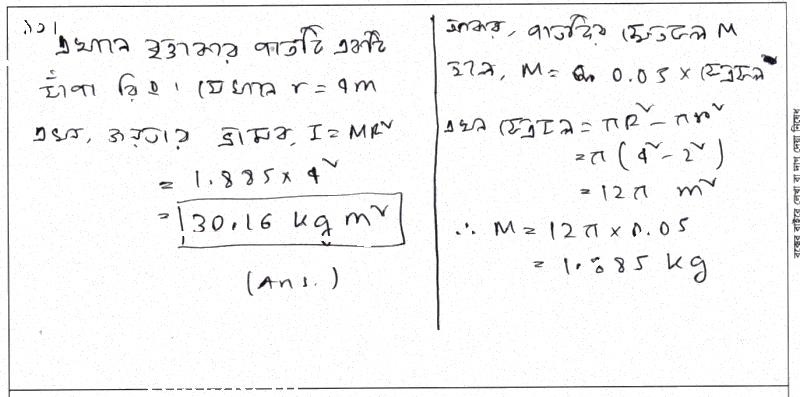 ১০।
এখানে বৃত্তাকার পাতটি একটি
ফাঁপা রিং। যেখানে r = 4m
এখন, জড়তার ভ্রামক, I = MR²
= 1.885 × 4²
= 30.16 kg m²
(Ans.)
আবার, পাতটির M
হলে, M = 0.05 × ক্ষেত্রফল
এখন ক্ষেত্রফল = πR² − πr²
= π (4² − 2²)
= 12π m²
∴ M = 12π × 0.05
= 1.885 kg
বক্সের বাইরে লেখা বা দাগ দেয়া নিষেধ